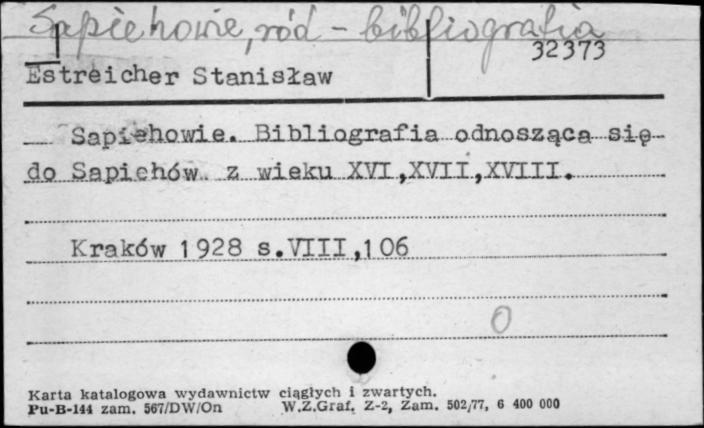 Sapiehowie, ród - bibliografia
32373
Estreicher Stanisław
Sapiehowie. Bibliografia odnosząca się
do Sapiehów z wieku XVI,XVII,XVIII.
Kraków 1928 s.VIII,106
0
Karta katalogowa wydawnictw ciągłych i zwartych.
Pu-B-144 zam. 567/DW/On W.Z.Graf. Z-2, Zam. 502/77, 6 400 000